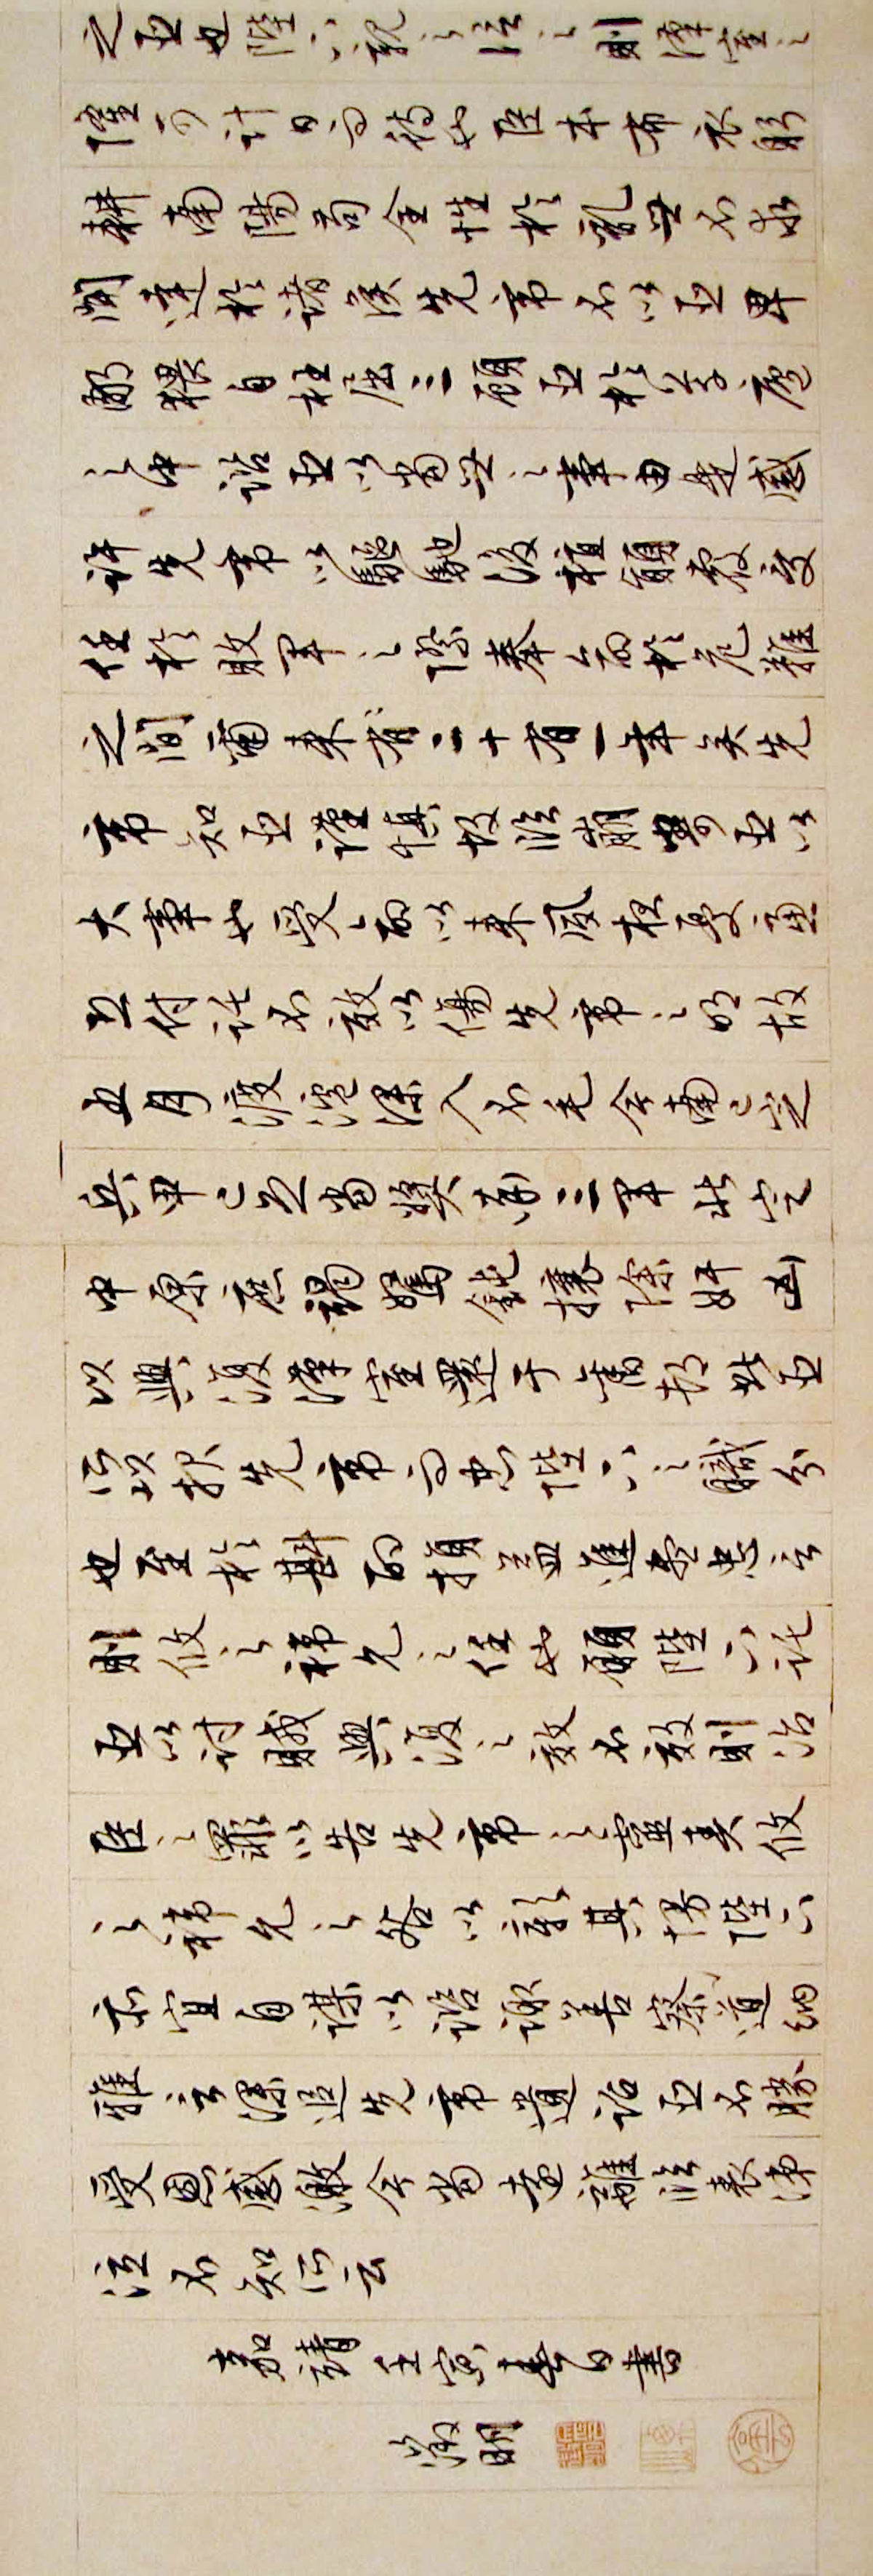 之臣也陛下親之信之則漢室之
隆可計日而待也臣本布衣躬
耕南陽苟全性於亂世不求
聞達於諸侯先帝不以臣卑
鄙猥自枉屈三顧臣於草廬
之中諮臣以當世之事由是感
許先帝以驅馳後值傾覆受
任於敗軍之際奉命於危難
之間爾來有二十有一年矣先
帝知臣謹慎故臨崩寄臣以
大事也受命以來夙夜憂慮
恐付託不效以傷先帝之明故
五月渡瀘深入不毛今南已定
兵甲已足當獎率三軍北定
中原庶竭駑鈍攘除奸凶
以興復漢室還于舊都此臣
所以報先帝而忠陛下之職分
也至於斟酌損益進盡忠言
則攸之禕允之任也願陛下託
臣以討賊興復之效不效則治
臣之罪以告先帝之靈責攸
之禕允之咎以彰其慢陛下
亦宜自謀以諮諏善察道納
雅言深追先帝遺詔臣不勝
受恩感激今當遠離臨表涕
泣不知所云
嘉靖壬寅春日書
徵明